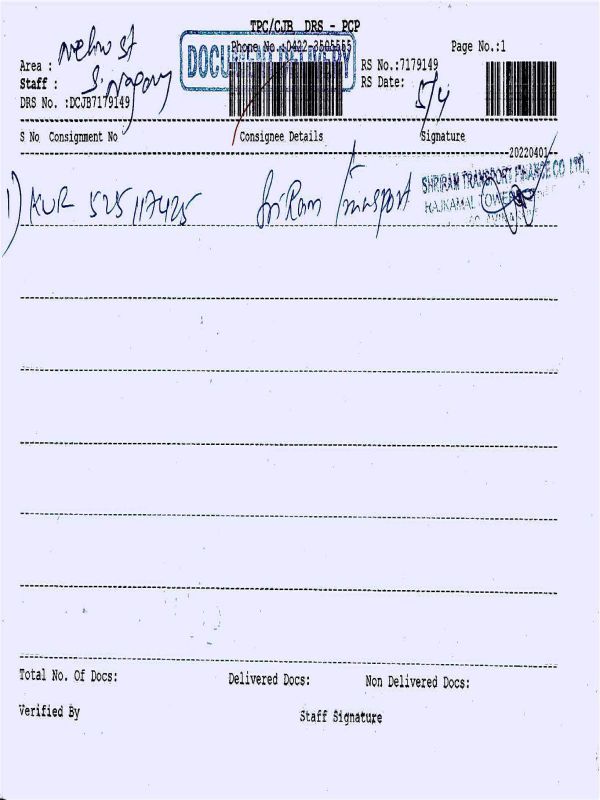 TPC/CJB DRS - PCP
DOCUMENT DELIVERY
Phone No.:0422-3505555
Page No.:1
Area : Nehru St
RS No.:7179149
Staff : S. Nagar
RS Date: 5/4
DRS No. :DCJB7179149
S No Consignment No Consignee Details Signature
20220401
1) KUR 525117425 Sri Ram Transport
SHRIRAM TRANSPORT FINANCE CO LTD.,
RAJKAMAL TOWER
Total No. Of Docs: Delivered Docs: Non Delivered Docs:
Verified By Staff Signature